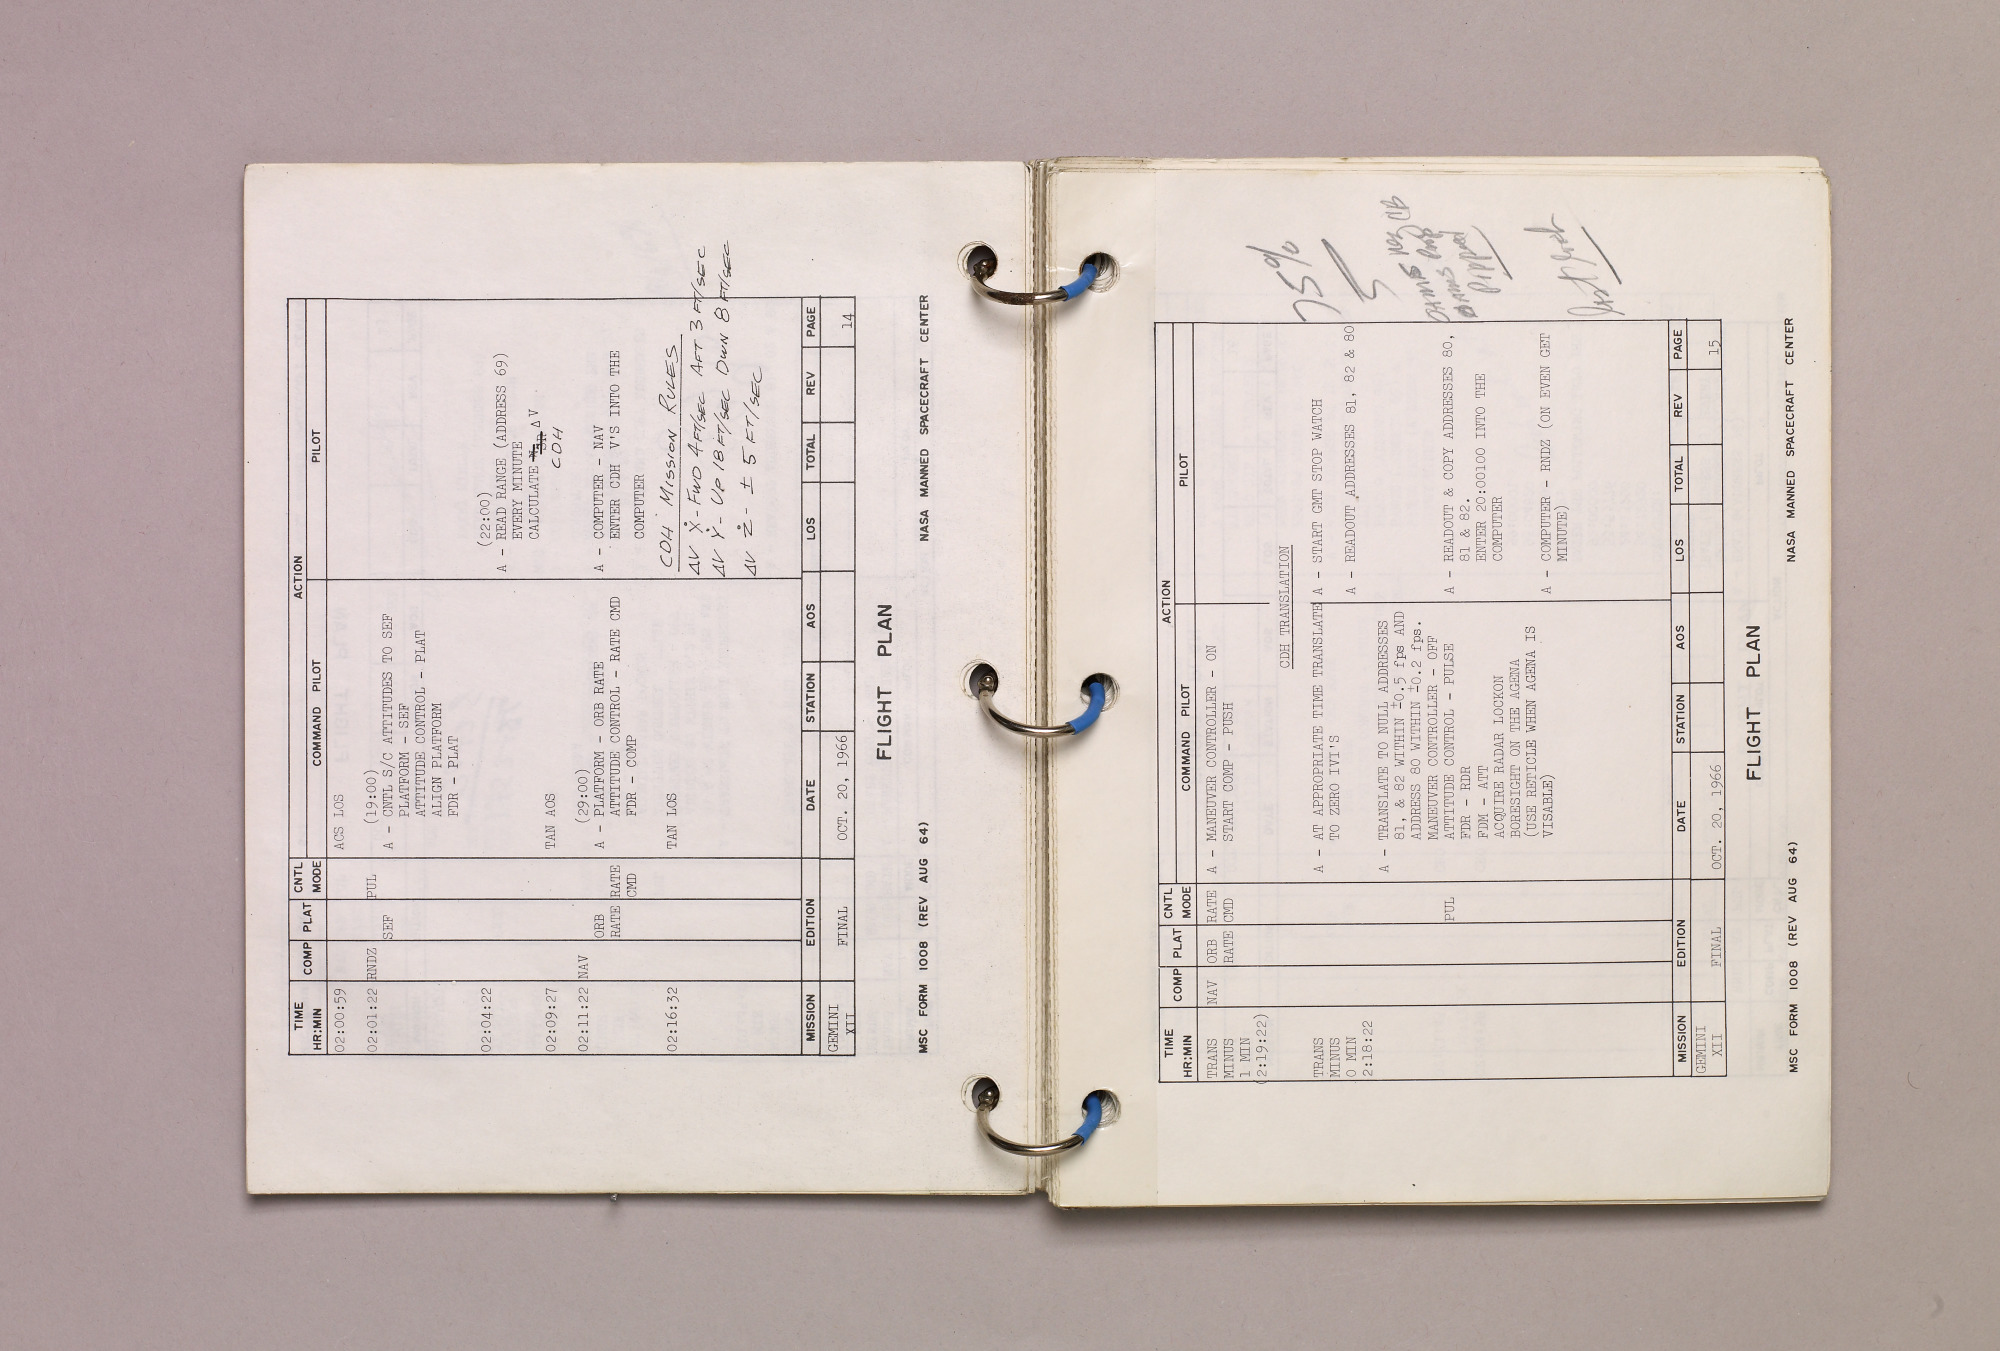 TIME
HR:MIN
COMP
PLAT
CNTL
MODE
ACTION
COMMAND PILOT
PILOT
02:00:59
ACS LOS
02:01:22
RNDZ
SEF
PUL
(19:00)
A - CNTL S/C ATTITUDES TO SEF
PLATFORM - SEF
ATTITUDE CONTROL - PLAT
ALIGN PLATFORM
FDR - PLAT
02:04:22
(22:00)
A - READ RANGE (ADDRESS 69)
EVERY MINUTE
CALCULATE Δ V
CDH
02:09:27
TAN AOS
02:11:22
NAV
ORB
RATE
RATE
CMD
(29:00)
A - PLATFORM - ORB RATE
ATTITUDE CONTROL - RATE CMD
FDR - COMP
A - COMPUTER - NAV
ENTER CDH V'S INTO THE
COMPUTER
02:16:32
TAN LOS
CDH MISSION RULES
ΔV Ẋ - FWD 4 FT/SEC AFT 3 FT/SEC
ΔV Ẏ - UP 18 FT/SEC DWN 8 FT/SEC
ΔV Ż - ± 5 FT/SEC
MISSION
EDITION
DATE
STATION
AOS
LOS
TOTAL
REV
PAGE
GEMINI
XII
FINAL
OCT. 20, 1966
14
FLIGHT PLAN
MSC FORM 1008 (REV AUG 64)
NASA MANNED SPACECRAFT CENTER
TIME
HR:MIN
COMP
PLAT
CNTL
MODE
ACTION
COMMAND PILOT
PILOT
TRANS
MINUS
1 MIN
(2:19:22)
NAV
ORB
RATE
RATE
CMD
A - MANEUVER CONTROLLER - ON
START COMP - PUSH
CDH TRANSLATION
75%
TRANS
MINUS
0 MIN
2:18:22
A - AT APPROPRIATE TIME TRANSLATE
TO ZERO IVI'S
A - START GMT STOP WATCH
A - READOUT ADDRESSES 81, 82 & 80
5
A - TRANSLATE TO NULL ADDRESSES
81, & 82 WITHIN ±0.5 fps AND
ADDRESS 80 WITHIN ±0.2 fps.
MANEUVER CONTROLLER - OFF
PUL
ATTITUDE CONTROL - PULSE
FDR - RDR
FDM - ATT
ACQUIRE RADAR LOCKON
BORESIGHT ON THE AGENA
(USE RETICLE WHEN AGENA IS
VISABLE)
A - READOUT & COPY ADDRESSES 80,
81 & 82.
ENTER 20:00100 INTO THE
COMPUTER
A - COMPUTER - RNDZ (ON EVEN GET
MINUTE)
MISSION
EDITION
DATE
STATION
AOS
LOS
TOTAL
REV
PAGE
GEMINI
XII
FINAL
OCT. 20, 1966
15
FLIGHT PLAN
MSC FORM 1008 (REV AUG 64)
NASA MANNED SPACECRAFT CENTER